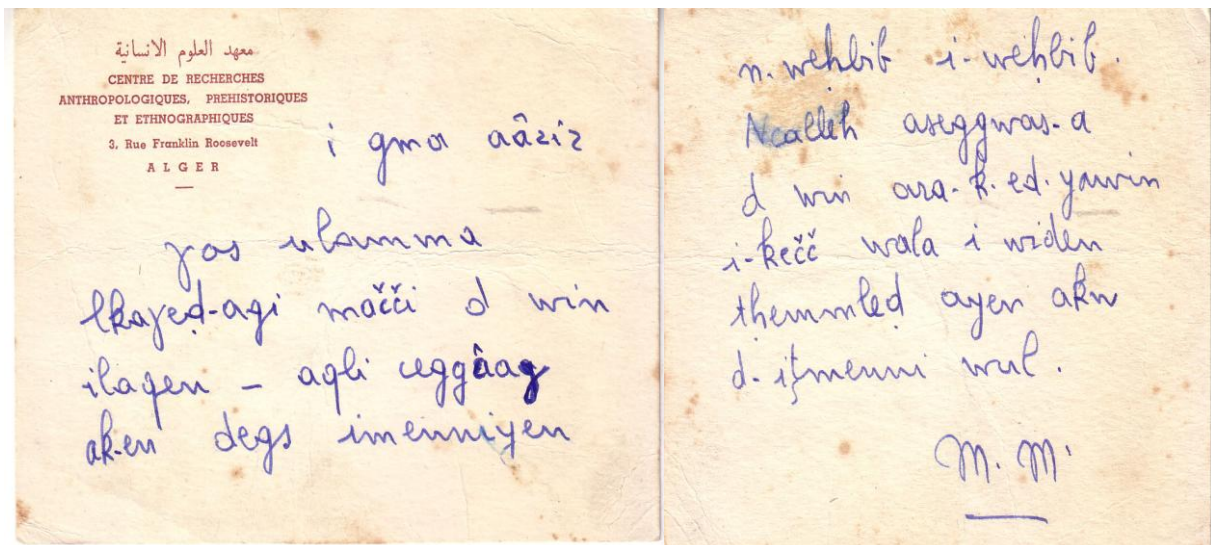 معهد العلوم الانسانية
CENTRE DE RECHERCHES
ANTHROPOLOGIQUES, PREHISTORIQUES
ET ETHNOGRAPHIQUES
3, Rue Franklin Roosevelt
ALGER
i gma aâziz
γas ulamma
lkaγeḍ-agi mačči d win
ilaqen - aqli ceggâaγ
ak-en degs imenniyen
n-weḥbib i-weḥbib.
Ncalleh aseggwas-a
d win ara-k-ed-yawin
i-kečč wala i widen
themmleḍ ayen akw
d-iţmenni wul.
M. M.